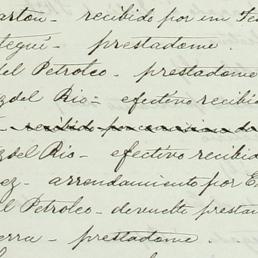 arton - recibido por un Te
tegui - prestadome.
del Petroleo - prestadome
z del Rio - efectivo recibid
- recibido por
z del Rio - efectivo recibid
ez - arrendamiento por E
l Petroleo - devuelto presta
erra - prestadome.